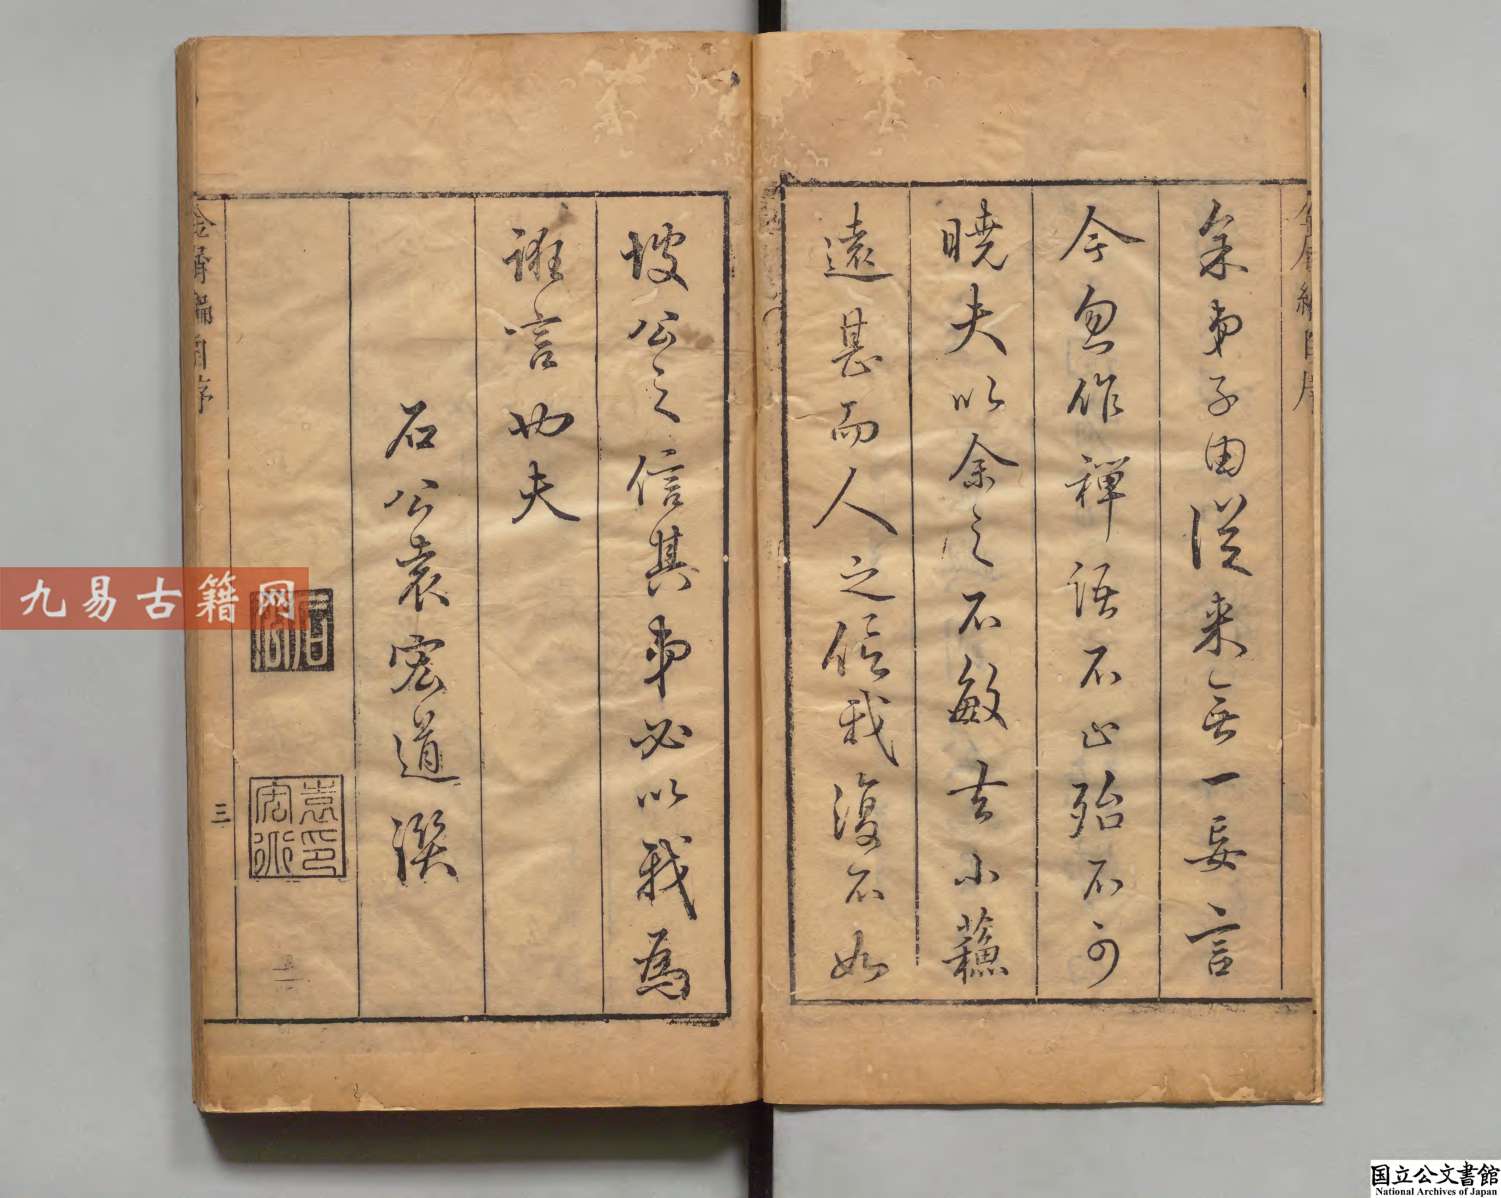 余弟子由從来無一妄言
今忽作禅語不止殆不可
曉夫以余之不敏去小蘓
遠甚而人之信我復不如
坡公之信其弟必以我為
誑言也夫
石公袁宏道撰
石公
袁印宏道
金屑編自序
三
九易古籍网
国立公文書館
National Archives of Japan